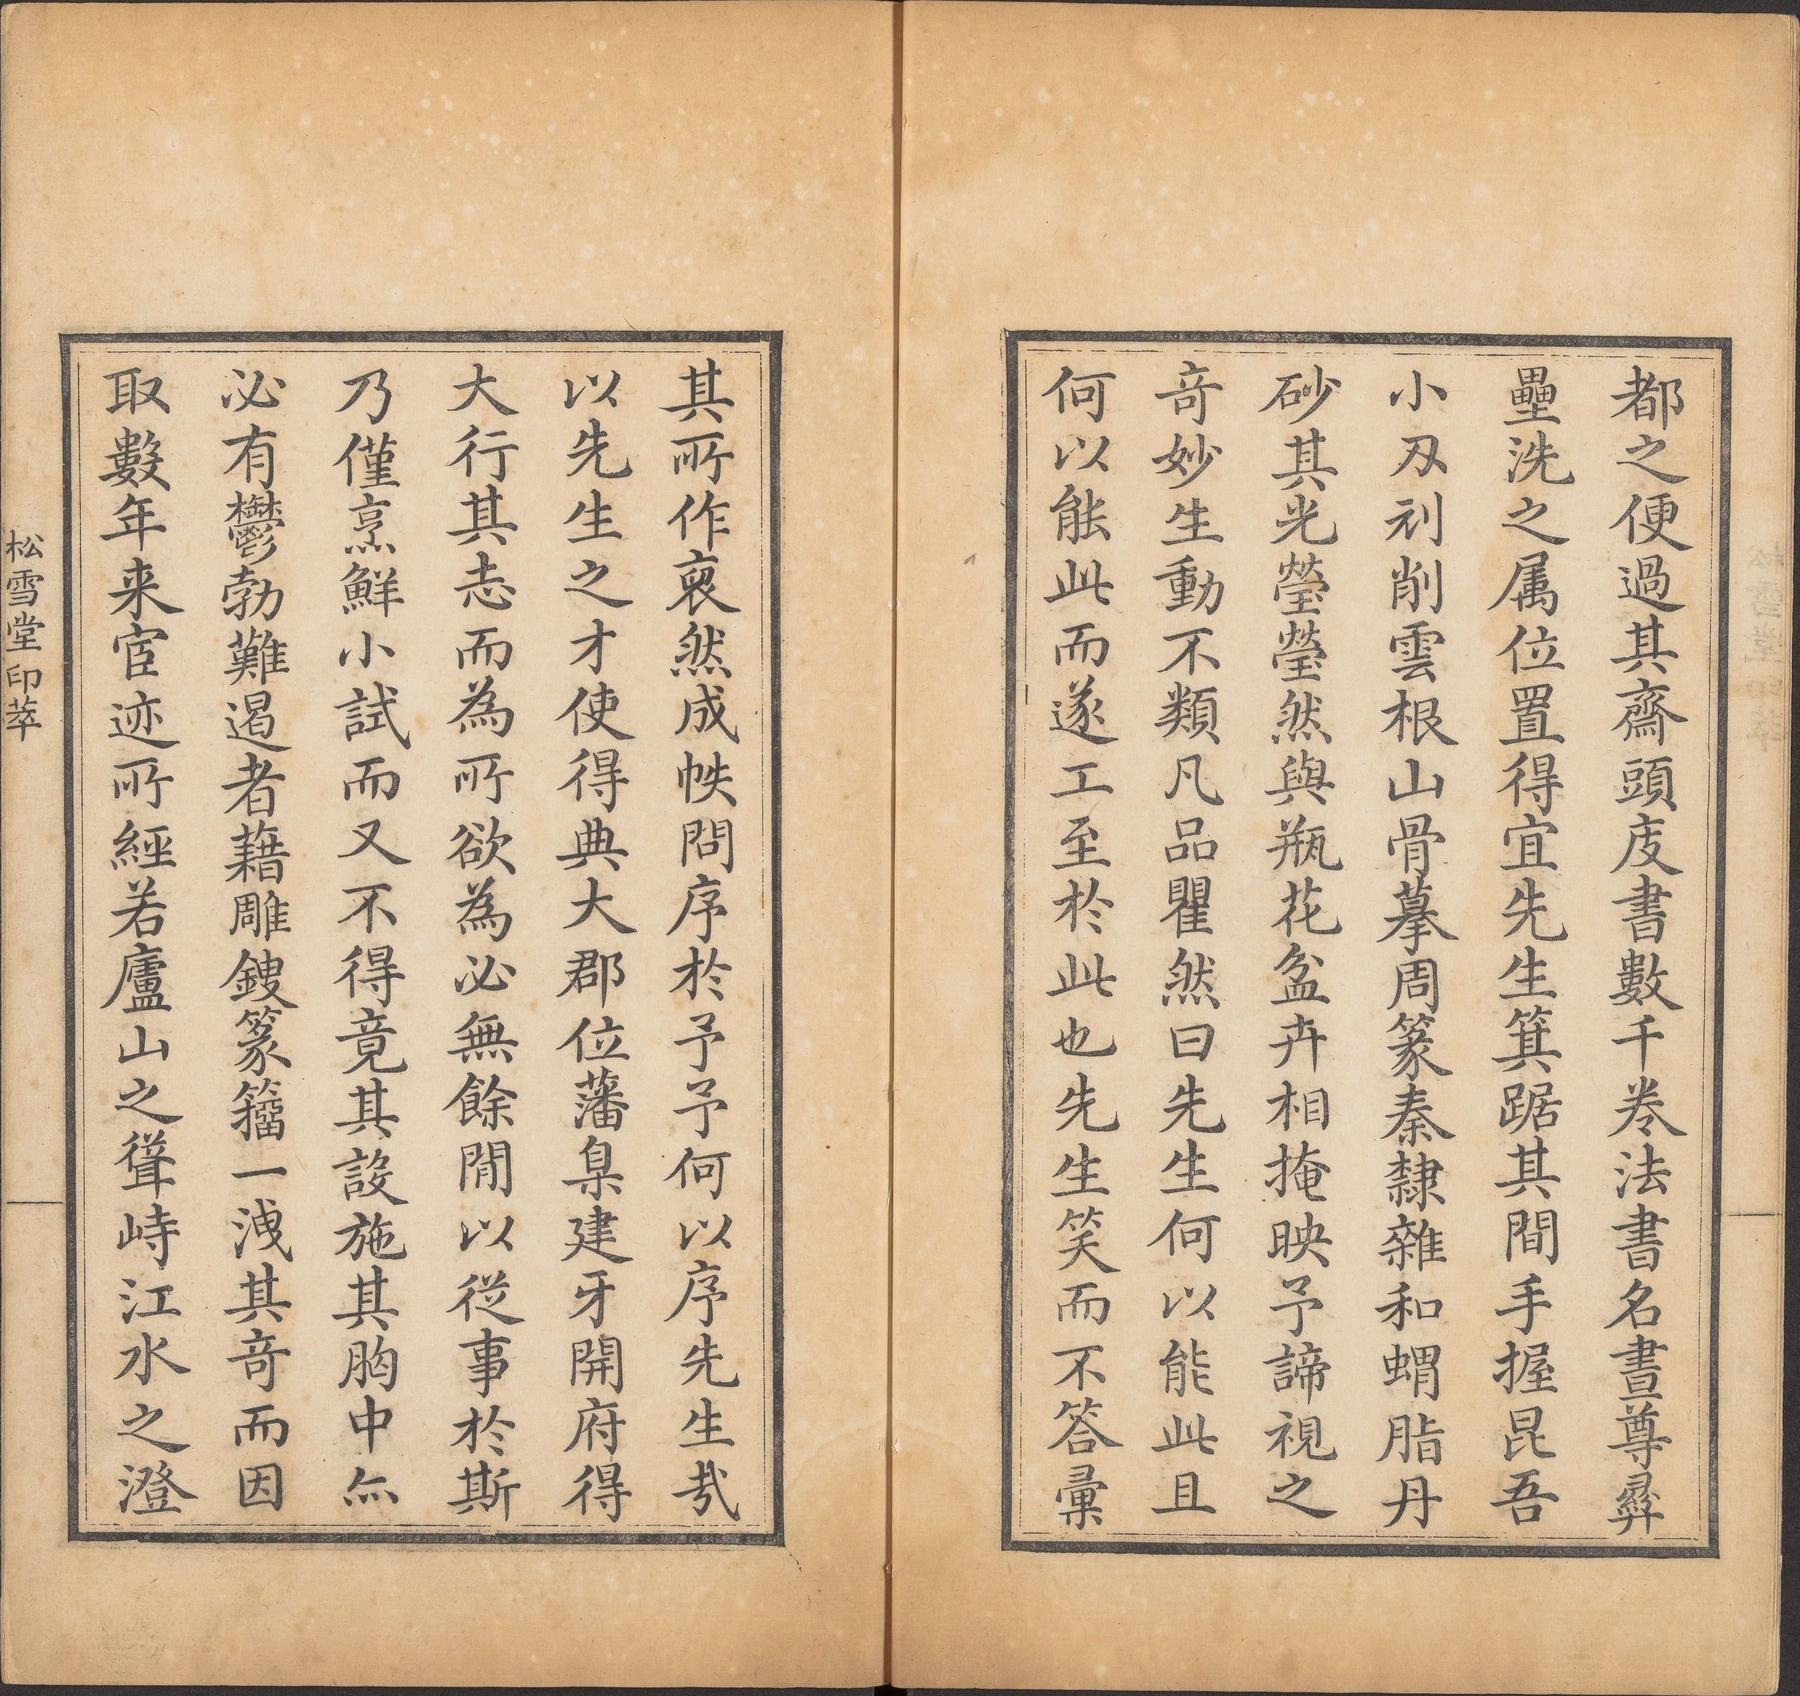 都之便過其齋頭庋書數千卷法書名畫尊彝
罍洗之属位置得宜先生箕踞其間手握昆吾
小刄刓削雲根山骨摹周篆秦隸雜和蝟脂丹
砂其光瑩瑩然與瓶花盆卉相掩映予諦視之
奇妙生動不類凡品瞿然曰先生何以能此且
何以能此而遂工至於此也先生笑而不答彙
其所作裒然成帙問序於予予何以序先生㦲
以先生之才使得典大郡位藩臬建牙開府得
大行其志而為所欲為必無餘閒以從事於斯
乃僅烹鮮小試而又不得竟其設施其胸中亦
必有鬱勃難遏者藉雕鎪篆籀一洩其奇而因
取數年来宦迹所經若廬山之聳峙江水之澄
松雪堂印萃